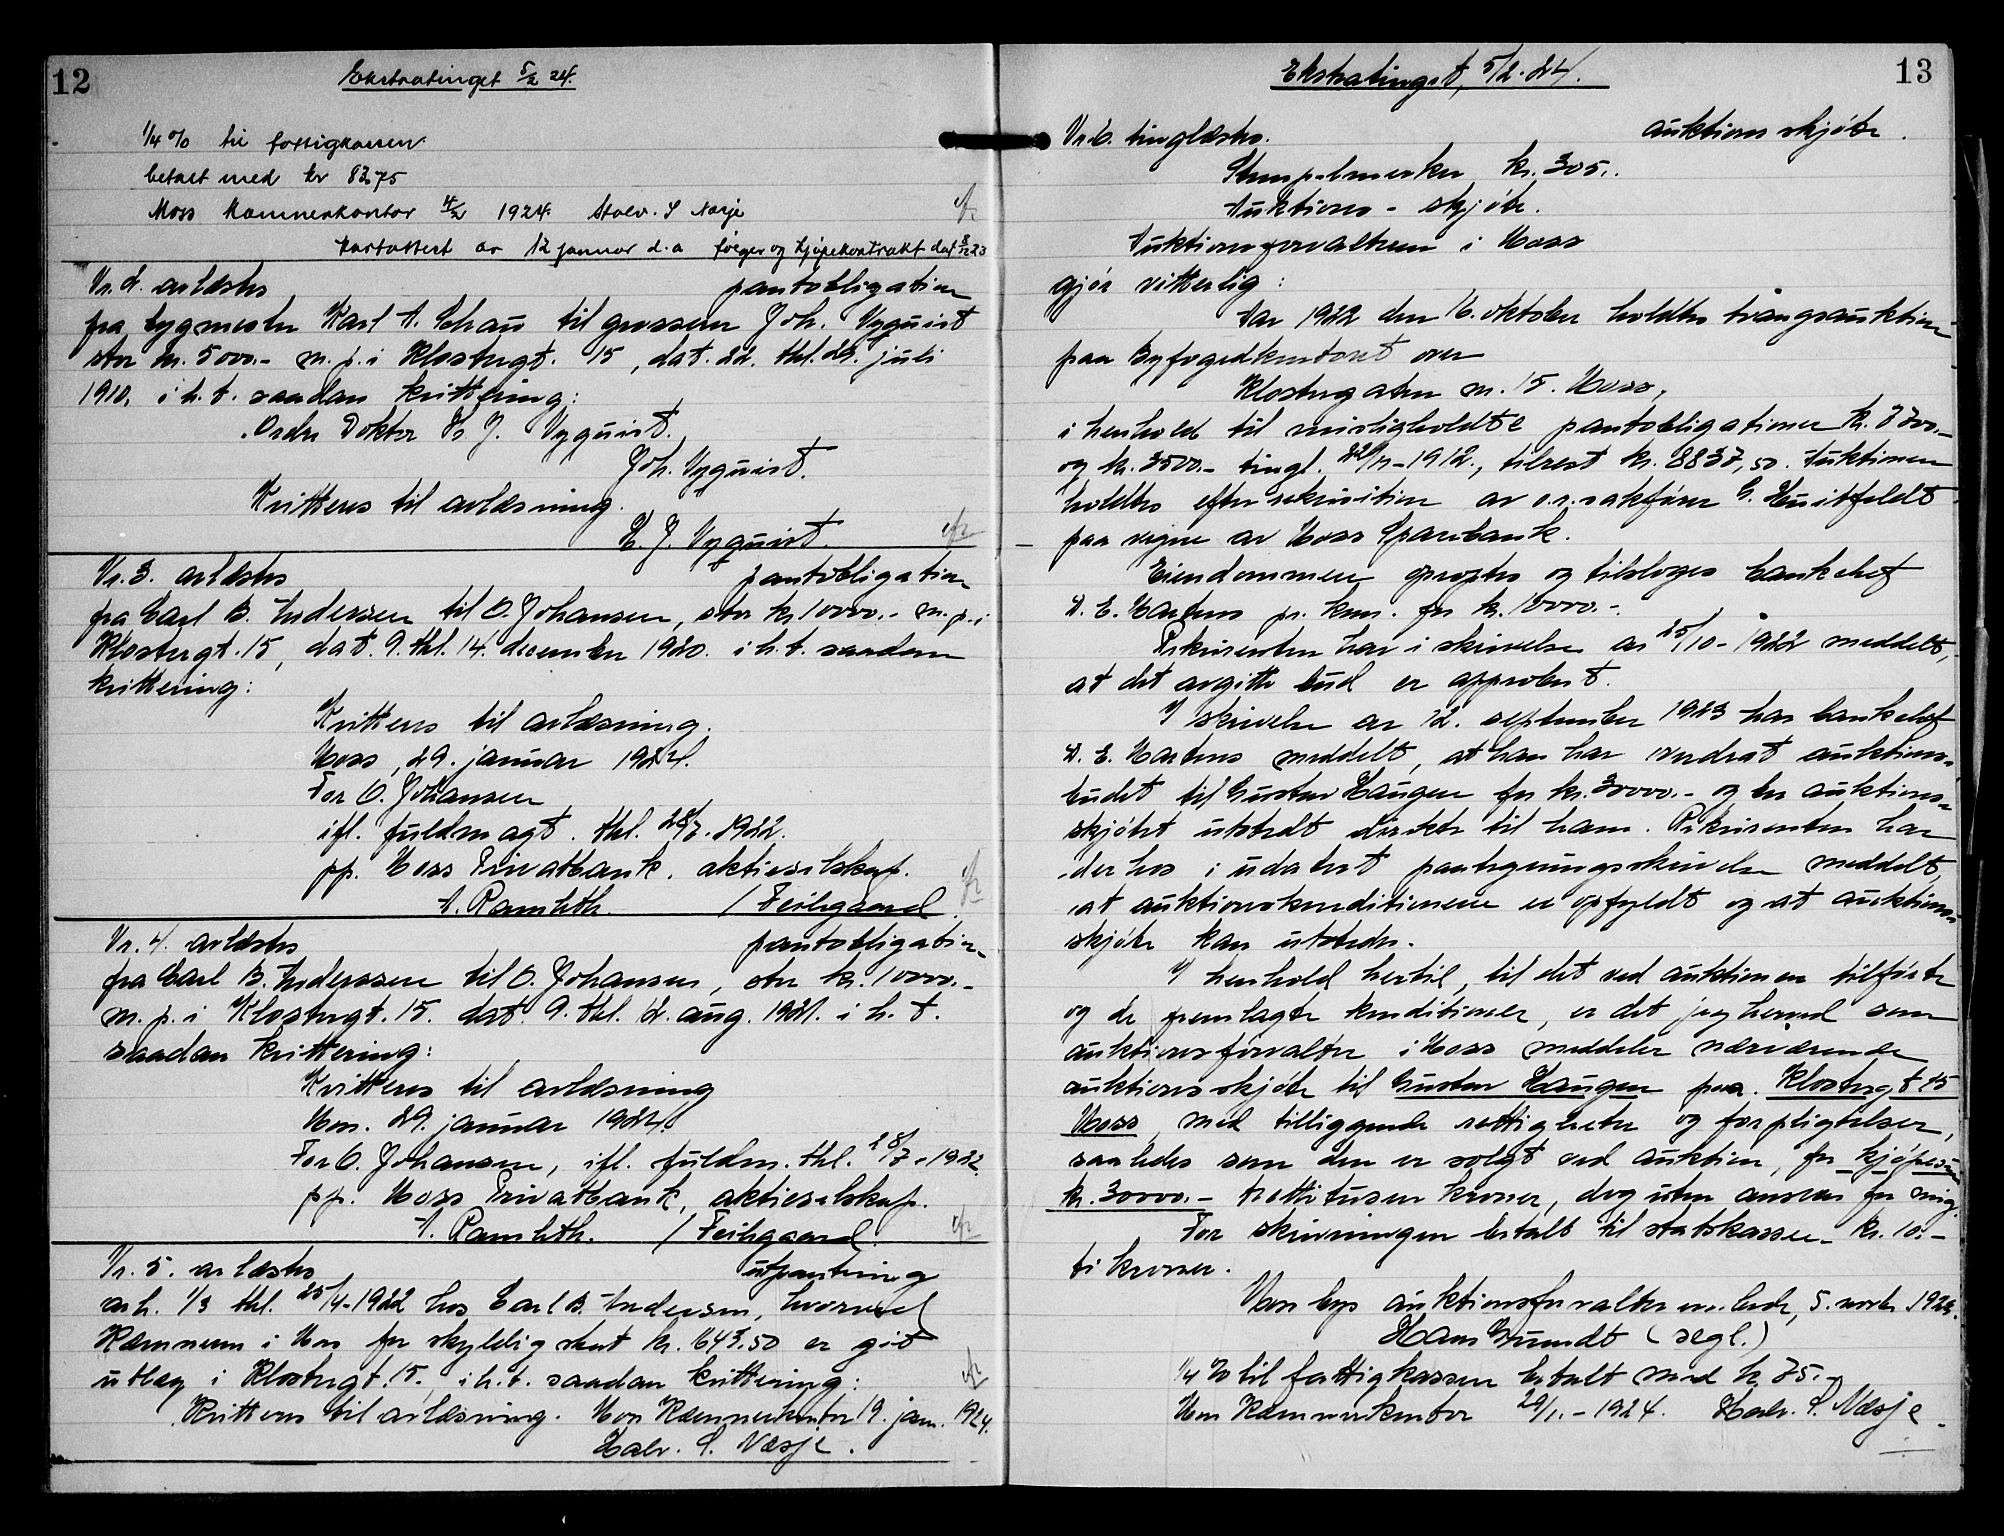 12
Ekstratinget 5/2 24.
1/4 % til fattigkassen
betalt med kr 83,75
Moss Kæmnerkontor 4/2 1924. Halv. S Næsje
kartattest av 12 januar d.a følger og kjøpekontrakt dat 8/12 23
Nr. 2. avlæstes pantobligation
fra bygmester Karl A. Schau til grosserer Joh. Nyquist
stor kr. 5000.- m. p. i Klostergt. 15, dat. 22. thl. 29. juli
1910, i h. t. saadan kvittering:
Ordre Doktor H. J. Nyquist.
Joh. Nyquist.
Kvitteres til avlæsning.
H. J. Nyquist.
Nr. 3. avlæstes pantobligation
fra Carl B. Anderssen til O. Johansen, stor kr. 10000.- m. p. i
Klostergt. 15, dat. 9. thl. 14. december 1920. i h. t. saadan
kvittering:
Kvitteres til avlæsning.
Moss, 29. januar 1924.
For O. Johansen
ifl. fuldmagt. thl. 28/7. 1922.
pp. Moss Privatbank, aktieselskap.
A. Ramleth. / Feilgaard
Nr. 4. avlæstes pantobligation
fra Carl B. Anderssen til O. Johansen, stor kr. 10000.-
m. p. i Klostergt. 15. dat. 9. thl. 12. aug. 1921. i h. t.
saadan kvittering:
Kvitteres til avlæsning
Moss. 29. januar 1924.
For O. Johansen, ifl. fuldm. thl. 28/7 - 1922.
pp. Moss Privatbank, aktieselskap.
A. Ramleth. / Feilgaard.
Nr. 5. avlæstes utpantning
avh. 1/3 thl. 25/4-1922 hos Carl B. Andersen, hvorved
Kæmneren i Moss for skyldig skat kr. 1643.50 er git
utlæg i Klostergt. 15, i h. t. saadan kvittering:
Kvitteres til avlæsning. Moss Kæmnerkontor 19. jan. 1924.
Halv. S. Næsje.
13
Ekstratinget, 5/2. 24.
Nr. 6. tinglæstes. auktions skjøte.
Stempelmerker kr. 305.-
Auktions - skjøte.
Auktionsforvalteren i Moss
gjør vitterlig:
Aar 1922 den 16. oktober holdtes tvangsauktion
paa Byfogedkontoret over
Klostergaten nr. 15. Moss,
i henhold til misligholdte pantobligationer kr. 7700.-
og kr. 3500.- tingl. 22/11-1912., tilrest kr. 8837,50. Auktionen
holdtes efter rekvisition av o.r.sakfører C. Huitfeldt
paa vegne av Moss Sparebank.
Eiendommen opraptes og tilsloges bankchef
A. E. Martens pr. kom. for kr. 10000.-.
Rekvirenten har i skrivelse av 25/10 - 1922 meddelt,
at det avgitte bud er approbert.
I skrivelse av 12. september 1923 har bankchef
A. E. Martens meddelt, at han har overdrat auktions-
budet til Gustav Haugen for kr. 30000.- og ber auktions-
skjøtet utstedt direkte til ham. Rekvirenten har
derhos i udatert paategningsskrivelse meddelt,
at auktionskonditionene er opfyldt og at auktions-
skjøte kan utstedes.
I henhold hertil, til det ved auktionen tilførte
og de fremlagte konditioner, er det jeg herved som
auktionsforvalter i Moss meddeler nærværende
auktions skjøte til Gustav Haugen paa Klostergt 15
Moss, med tilliggende rettigheter og forpligtelser,
saaledes som den er solgt ved auktion, for kjøpesum
kr. 30000.- trettitusen kroner, dog uten ansvar for mig.
For skrivningen betalt til statskassen kr. 10.-
ti kroner.
Moss bys auktionsforvalterembede, 5. novbr. 1923.
Hans Gundt (segl.)
1/4 % til fattigkassen betalt med kr. 75.-
Moss Kæmnerkontor 29/1. - 1924. Halv. S. Næsje